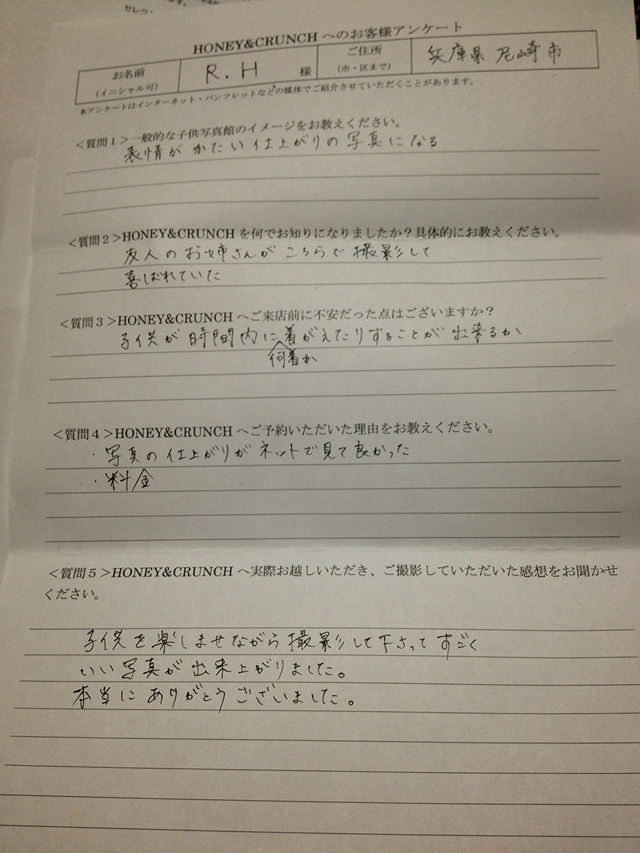 HONEY&CRUNCH へのお客様アンケート
お名前 (イニシャル可) R.H 様 ご住所 (市・区まで) 兵庫県 尼崎市
本アンケートはインターネット・パンフレットなどの媒体でご紹介させていただくことがあります。
<質問1>一般的な子供写真館のイメージをお教えください。
表情がかたい仕上がりの写真になる
<質問2>HONEY&CRUNCH を何でお知りになりましたか？具体的にお教えください。
友人のお姉さんがこちらで撮影して
喜ばれていた
<質問3>HONEY&CRUNCH へご来店前に不安だった点はございますか？
子供が時間内に着がえたりすることが出来るか
何着か
<質問4>HONEY&CRUNCH へご予約いただいた理由をお教えください。
・写真の仕上がりがネットで見て良かった
・料金
<質問5>HONEY&CRUNCH へ実際お越しいただき、ご撮影していただいた感想をお聞かせ
ください。
子供を楽しませながら撮影して下さってすごく
いい写真が出来上がりました。
本当にありがとうございました。